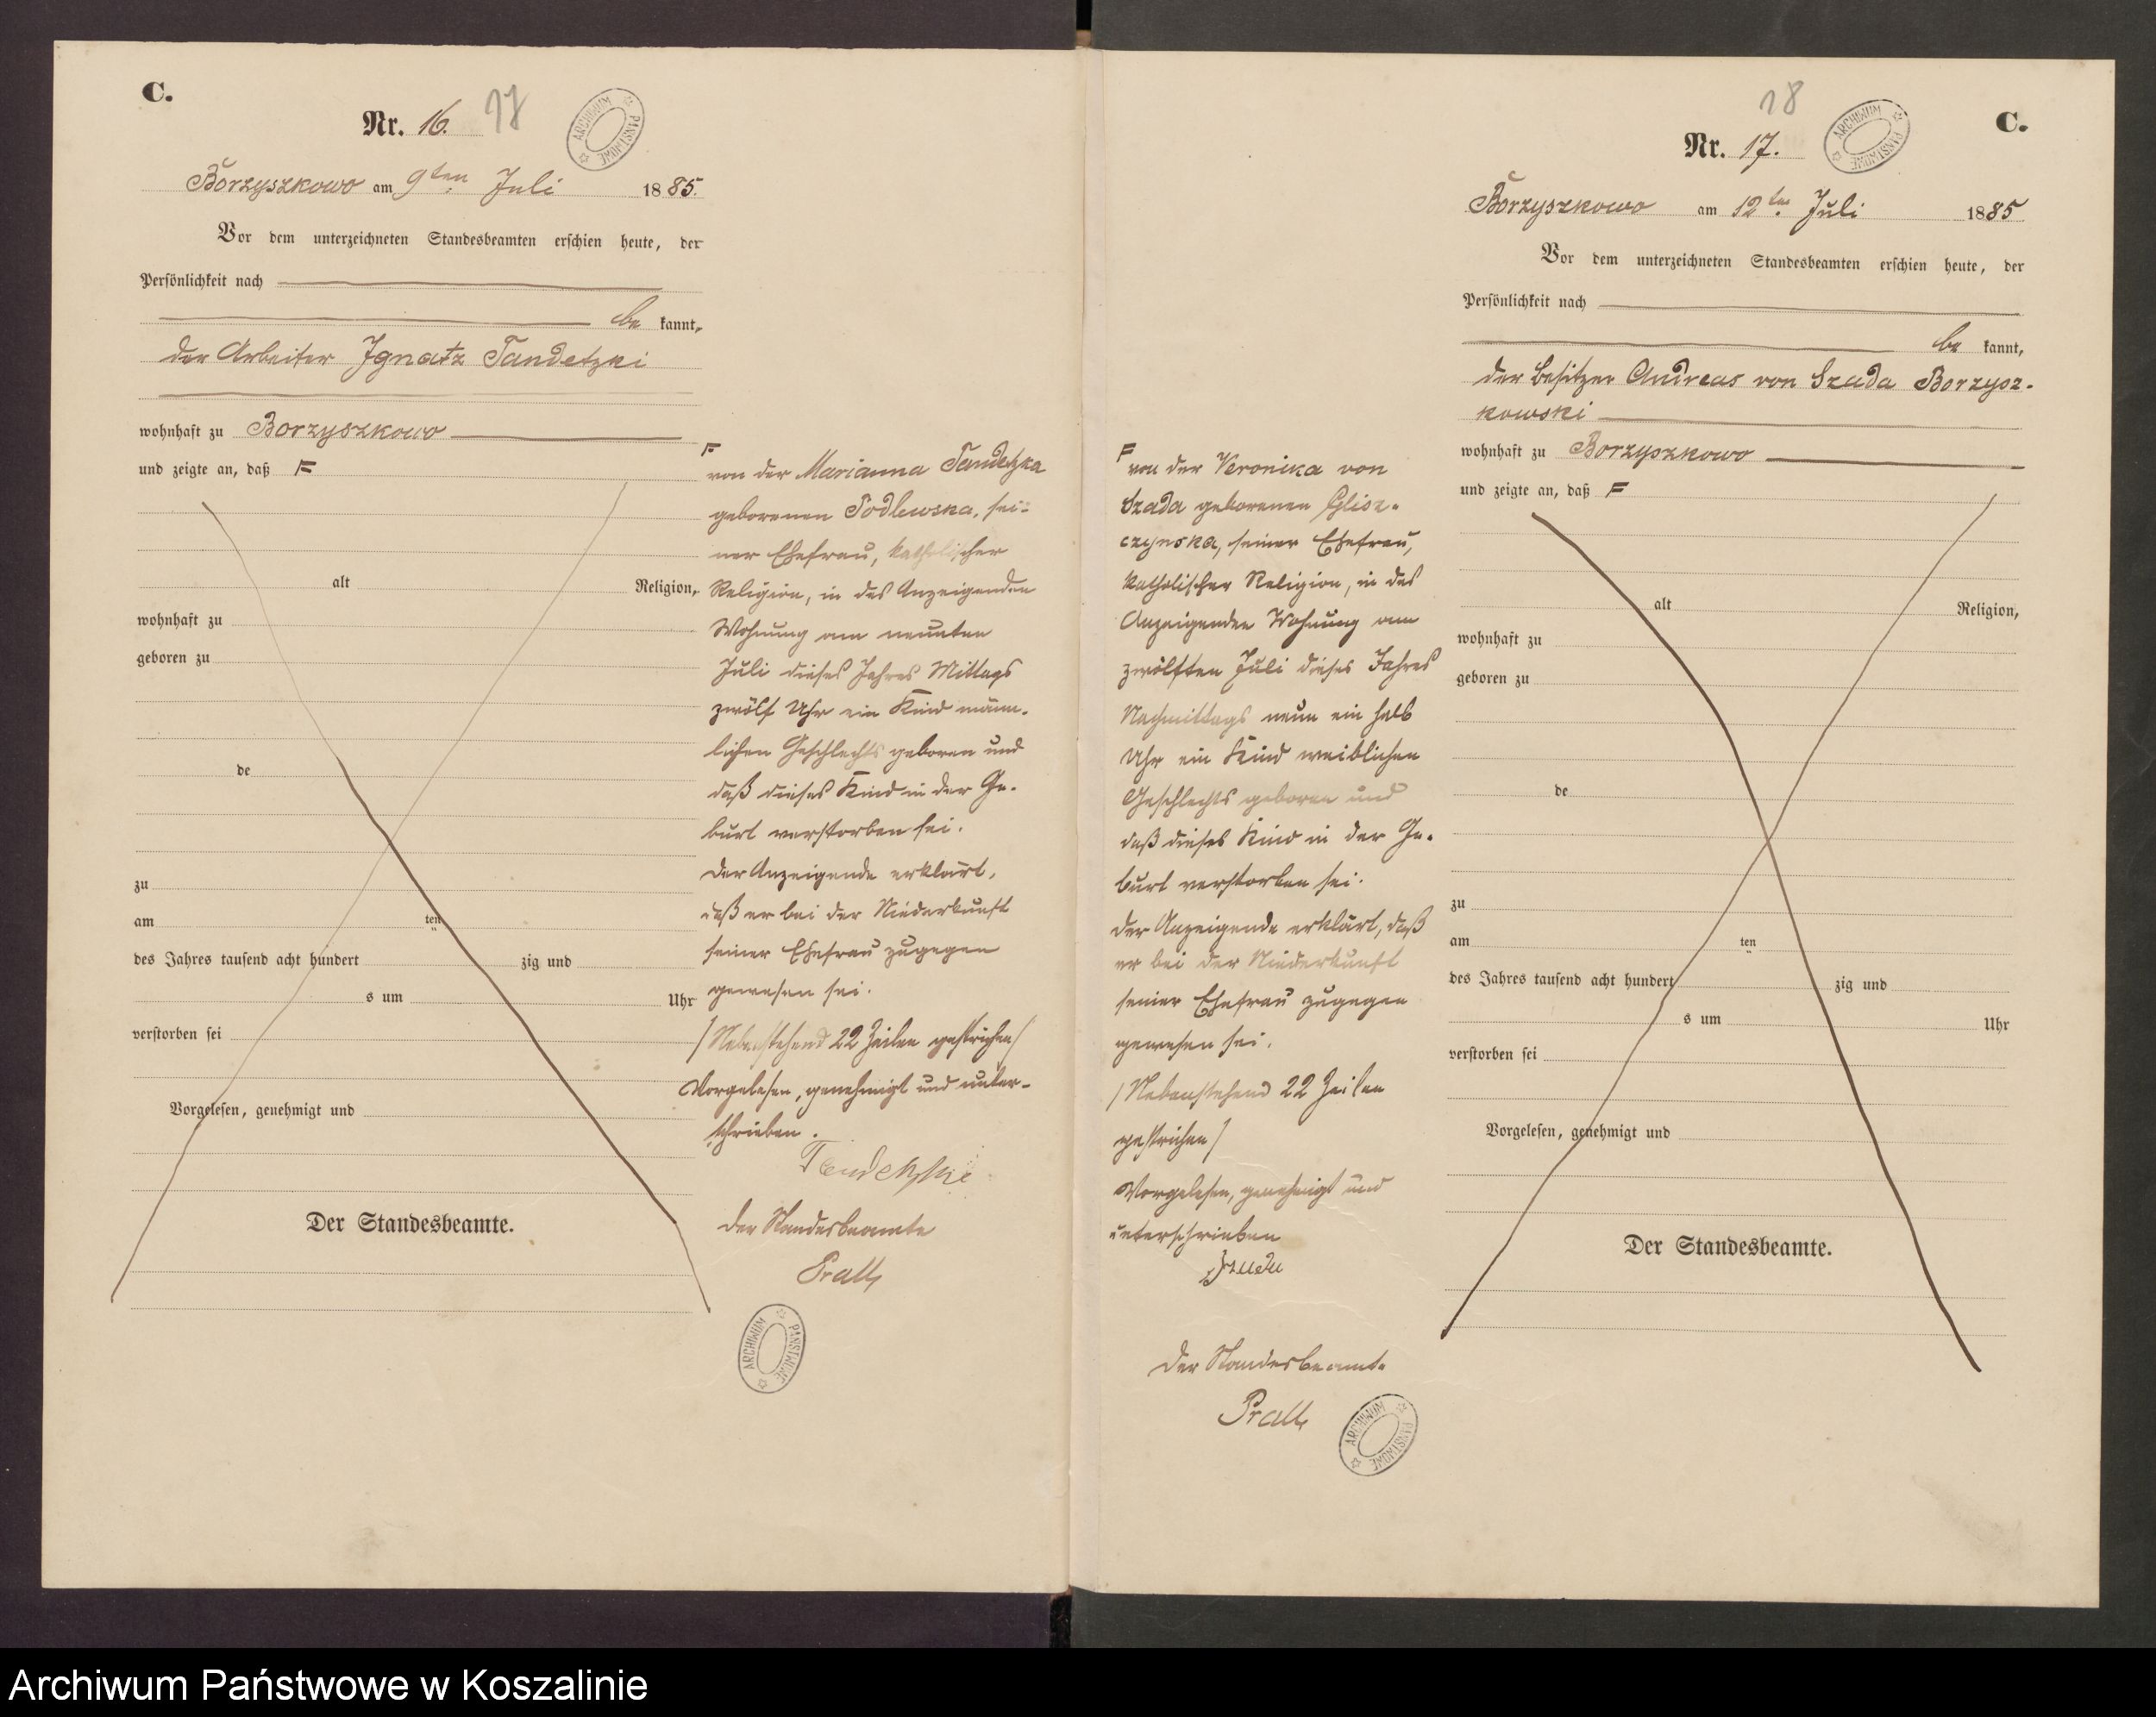 C.
Nr. 16. 17
ARCHIWUM PAŃSTWOWE
Borzyszkowo am 9ten Juli 1885.
Vor dem unterzeichneten Standesbeamten erschien heute, der
Persönlichkeit nach
be kannt,
der Arbeiter Ignatz Tandetzki
wohnhaft zu Borzyszkowo
und zeigte an, daß F
alt Religion,
wohnhaft zu
geboren zu
de
zu
am ten
des Jahres tausend acht hundert zig und
s um Uhr
verstorben sei
Vorgelesen, genehmigt und
Der Standesbeamte.
F
von der Marianna Tandetzka
geborenen Podlewska, sei-
ner Ehefrau, katholischer
Religion, in des Anzeigenden
Wohnung am neunten
Juli dieses Jahres Mittags
zwölf Uhr ein Kind männ-
lichen Geschlechts geboren und
daß dieses Kind in der Ge-
burt verstorben sei.
Der Anzeigende erklärt,
daß er bei der Niederkunft
seiner Ehefrau zugegen
gewesen sei.
/Nebenstehend 22 Zeilen gestrichen/
Vorgelesen, genehmigt und unter-
schrieben.
Tandetzki
Der Standesbeamte
ARCHIWUM PAŃSTWOWE
C.
18
Nr. 17.
ARCHIWUM PAŃSTWOWE
Borzyszkowo am 12ten Juli 1885
Vor dem unterzeichneten Standesbeamten erschien heute, der
Persönlichkeit nach
be kannt,
der Besitzer Andreas von Szada Borzysz-
kowski
wohnhaft zu Borzyszkowo
und zeigte an, daß F
alt Religion,
wohnhaft zu
geboren zu
de
zu
am ten
des Jahres tausend acht hundert zig und
s um Uhr
verstorben sei
Vorgelesen, genehmigt und
Der Standesbeamte.
F
von der Veronika von
Szada geborenen Glisz-
czynska, seiner Ehefrau,
katholischer Religion, in des
Anzeigenden Wohnung am
zwölften Juli dieses Jahres
Nachmittags neun ein halb
Uhr ein Kind weiblichen
Geschlechts geboren und
daß dieses Kind in der Ge-
burt verstorben sei.
Der Anzeigende erklärt, daß
er bei der Niederkunft
seiner Ehefrau zugegen
gewesen sei.
/Nebenstehend 22 Zeilen
gestrichen/
Vorgelesen, genehmigt und
unterschrieben
Der Standesbeamte
ARCHIWUM PAŃSTWOWE
Archiwum Państwowe w Koszalinie